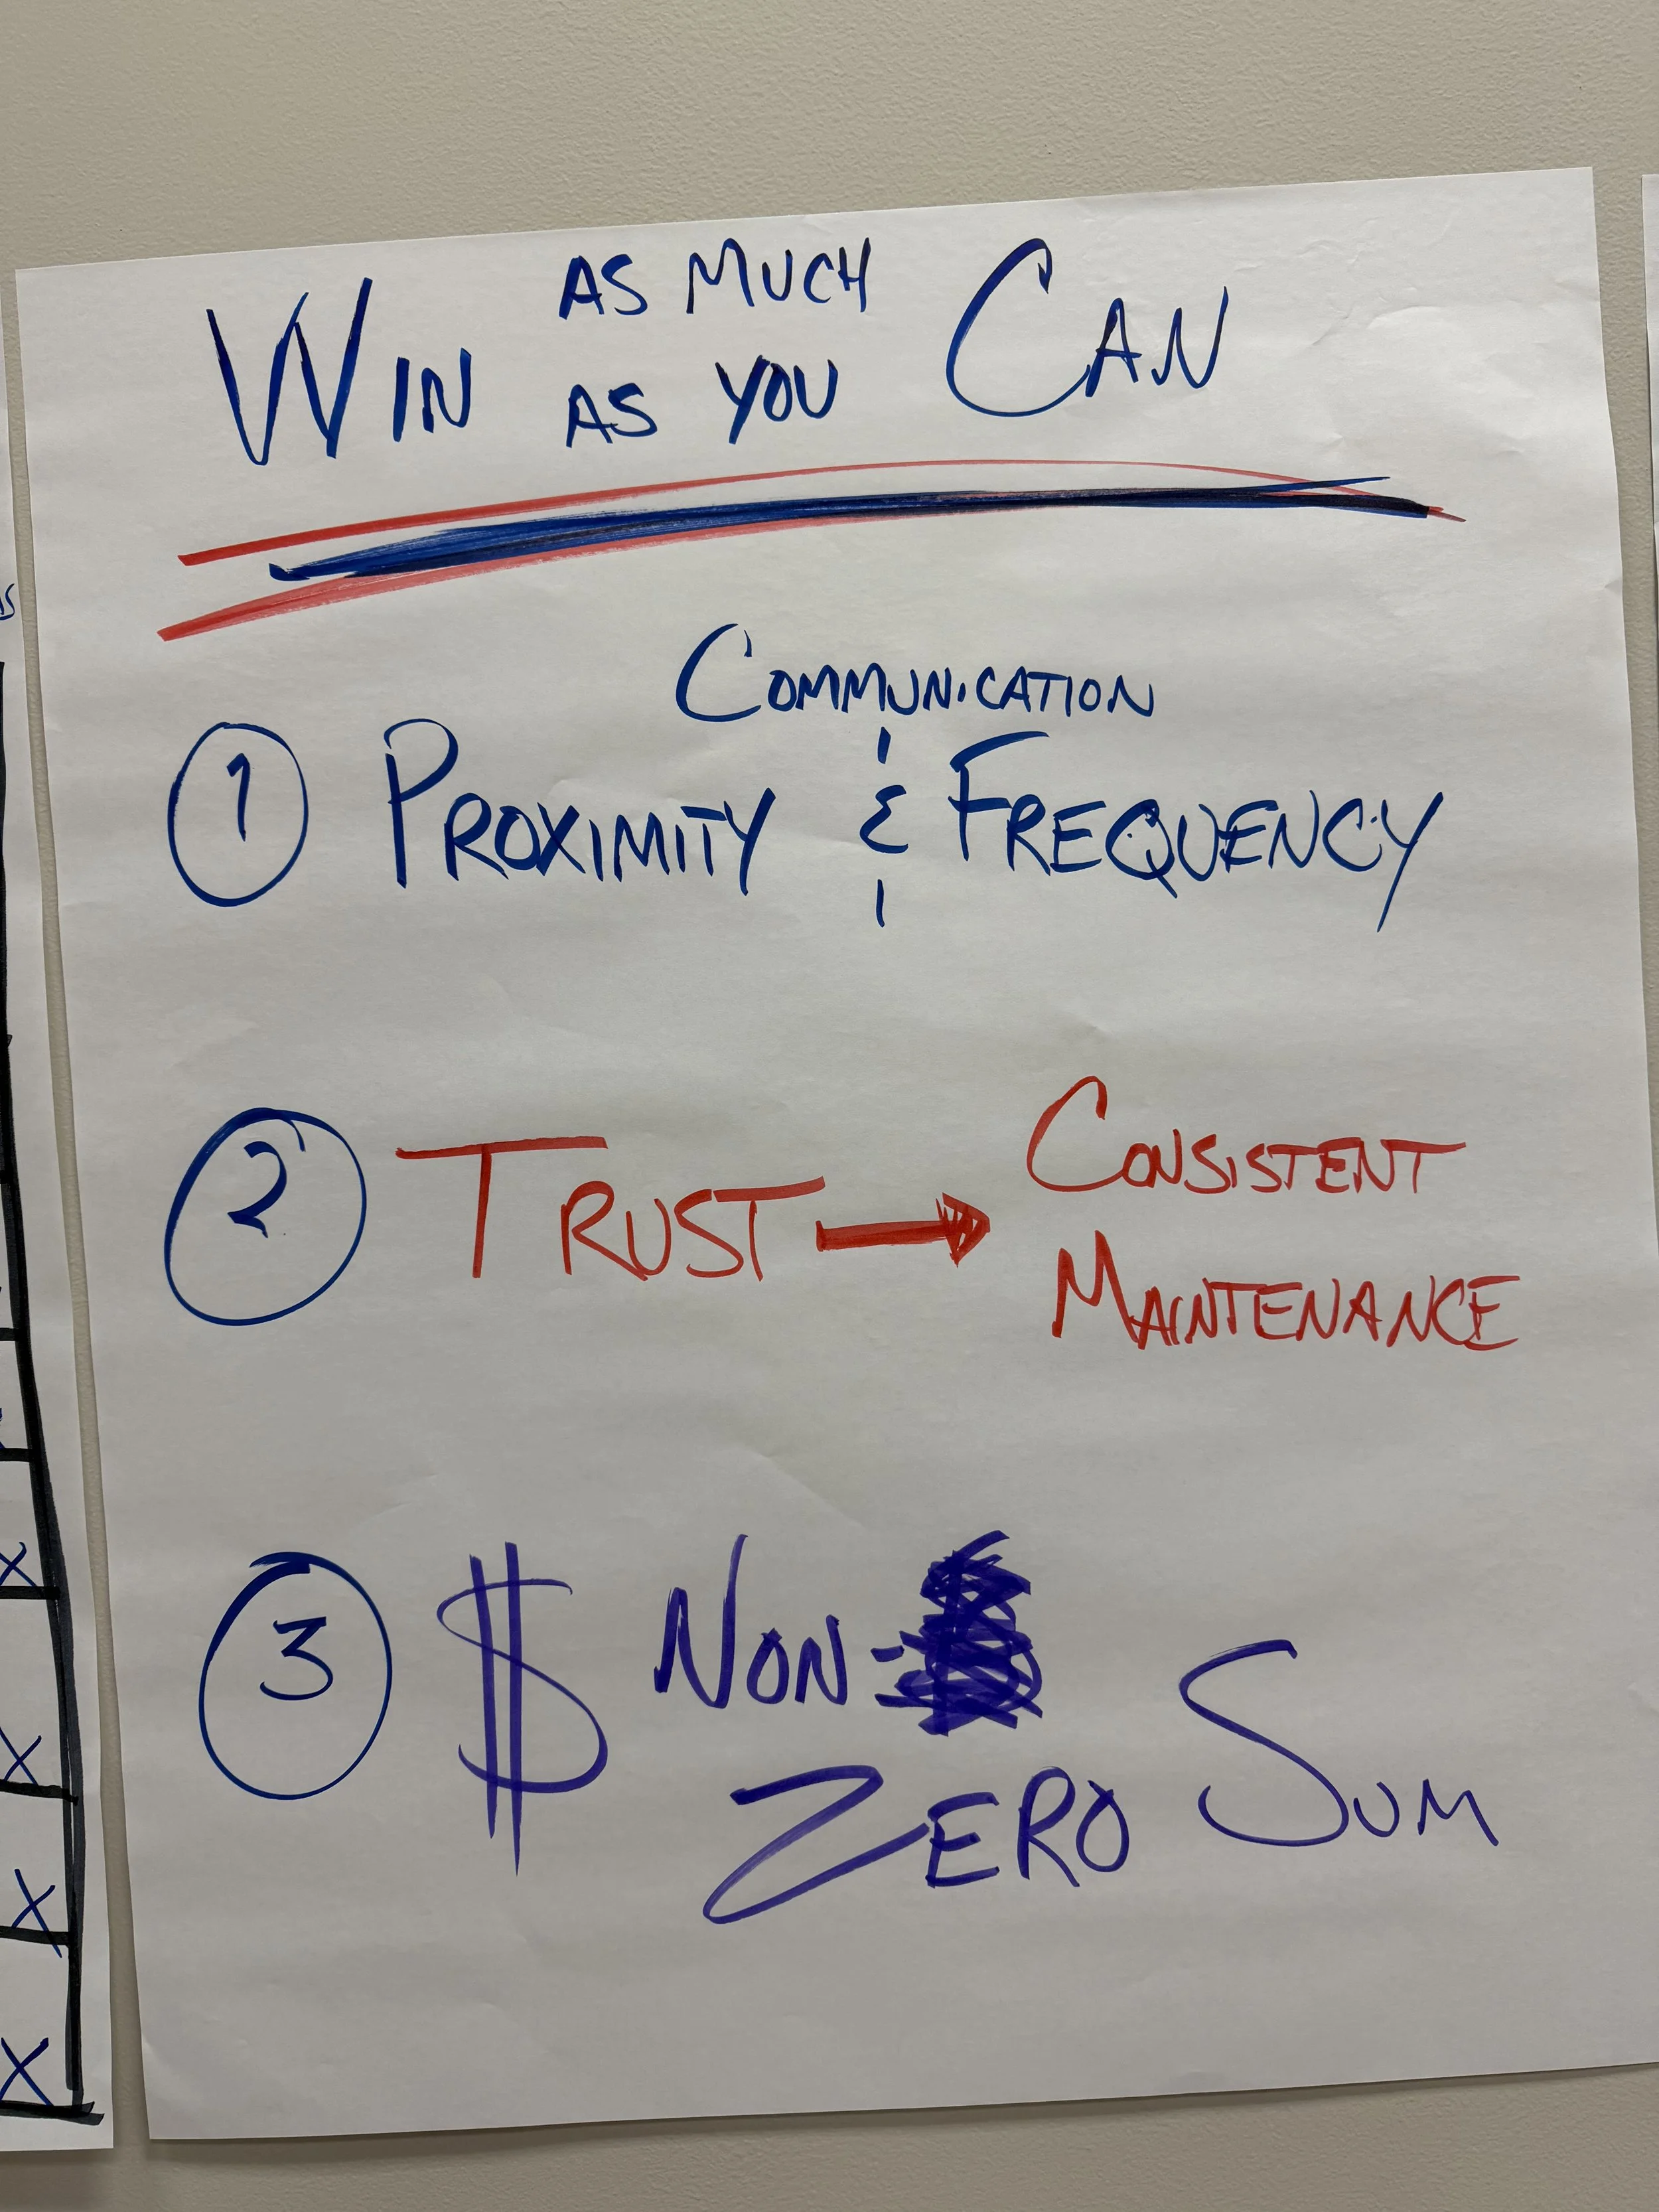 WIN AS MUCH AS YOU CAN
COMMUNICATION
1 PROXIMITY & FREQUENCY
2 TRUST → CONSISTENT
MAINTENANCE
3 $ NON-
ZERO SUM
X
X
X
X